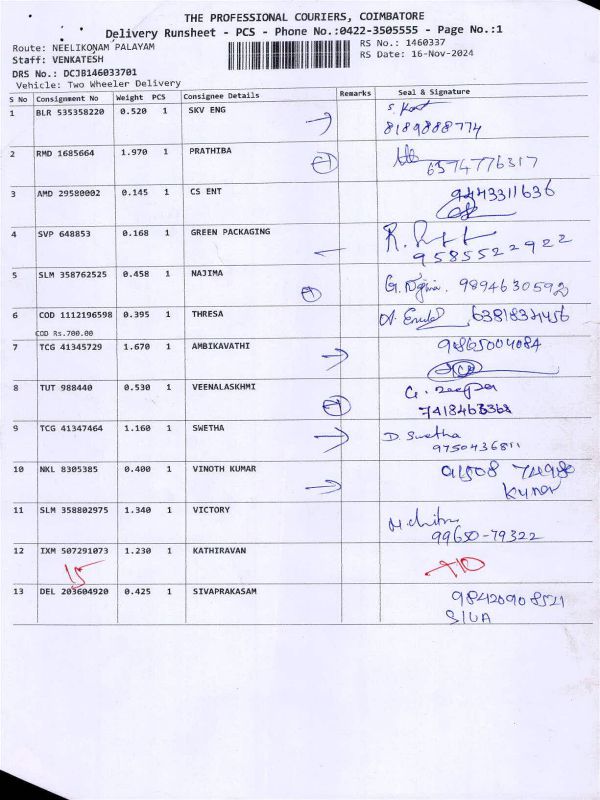 THE PROFESSIONAL COURIERS, COIMBATORE
Delivery Runsheet - PCS - Phone No.:0422-3505555 - Page No.:1
Route: NEELIKONAM PALAYAM RS No.: 1460337
Staff: VENKATESH RS Date: 16-Nov-2024
DRS No.: DCJB146033701
Vehicle: Two Wheeler Delivery
S No Consignment No Weight PCS Consignee Details Remarks Seal & Signature
1 BLR 535358220 0.520 1 SKV ENG
8189888774
2 RMD 1685664 1.970 1 PRATHIBA 6374776317
3 AMD 29580002 0.145 1 CS ENT 9443311636
4 SVP 648853 0.168 1 GREEN PACKAGING
9585522922
5 SLM 358762525 0.458 1 NAJIMA 9894630592
6 COD 1112196598 0.395 1 THRESA
COD Rs.700.00
7 TCG 41345729 1.670 1 AMBIKAVATHI 9865004084
8 TUT 988440 0.530 1 VEENALASKHMI
7418463368
9 TCG 41347464 1.160 1 SWETHA D. Swetha
9750436811
10 NKL 8305385 0.400 1 VINOTH KUMAR
Kumar
11 SLM 358802975 1.340 1 VICTORY
99650-79322
12 IXM 507291073 1.230 1 KATHIRAVAN
15
13 DEL 203604920 0.425 1 SIVAPRAKASAM
SIVA